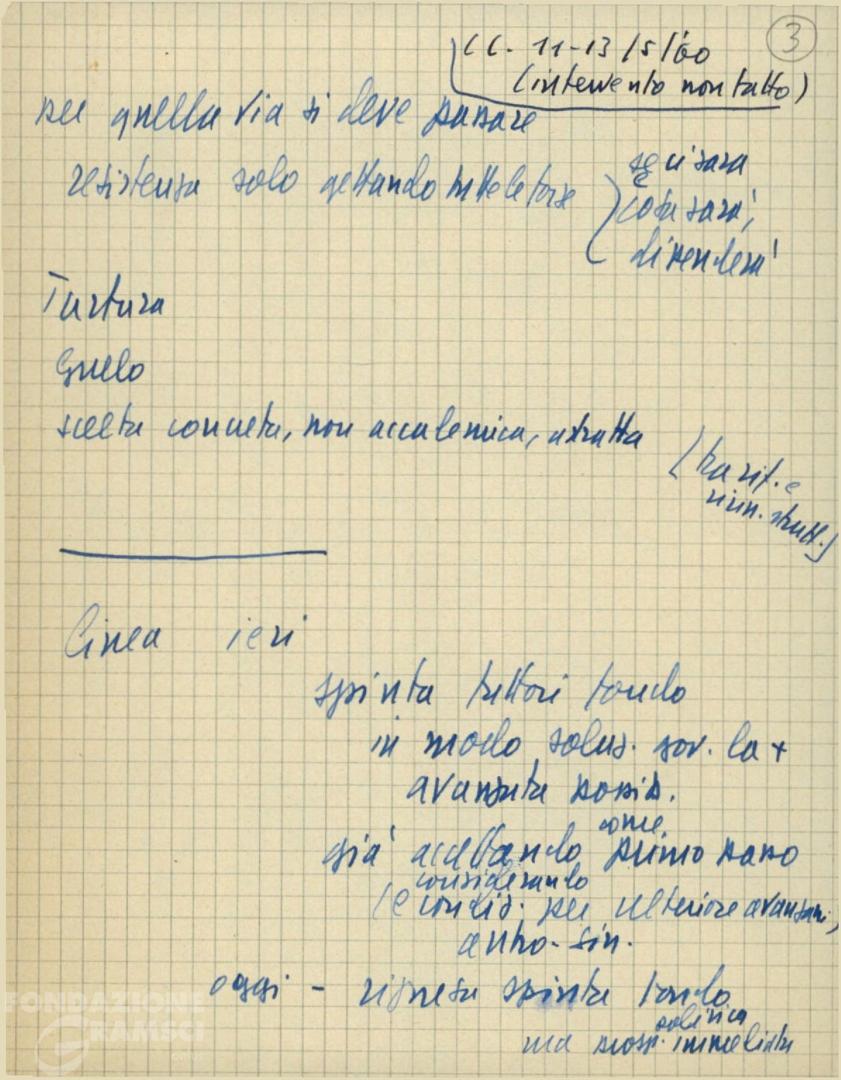 3
CC. 11-13/5/60
(intervento non fatto)
per quella via si deve passare
resistenza solo gettando tutte le forze
se ci sarà
cosa sarà,
dipenderà
Turtura
Gullo
scelta concreta, non accademica, astratta
(tra rif. e
rinn. strutt.)
Linea ieri
spinta a fondo
in modo soluz. gov. la +
avanzata possib.
già accettando come primo passo
considerando
(e condiz. per ulteriore avanzam.,
centro-sin.
oggi - ripresa spinta fondo
ma prosp. immediata
FONDAZIONE
GRAMSCI